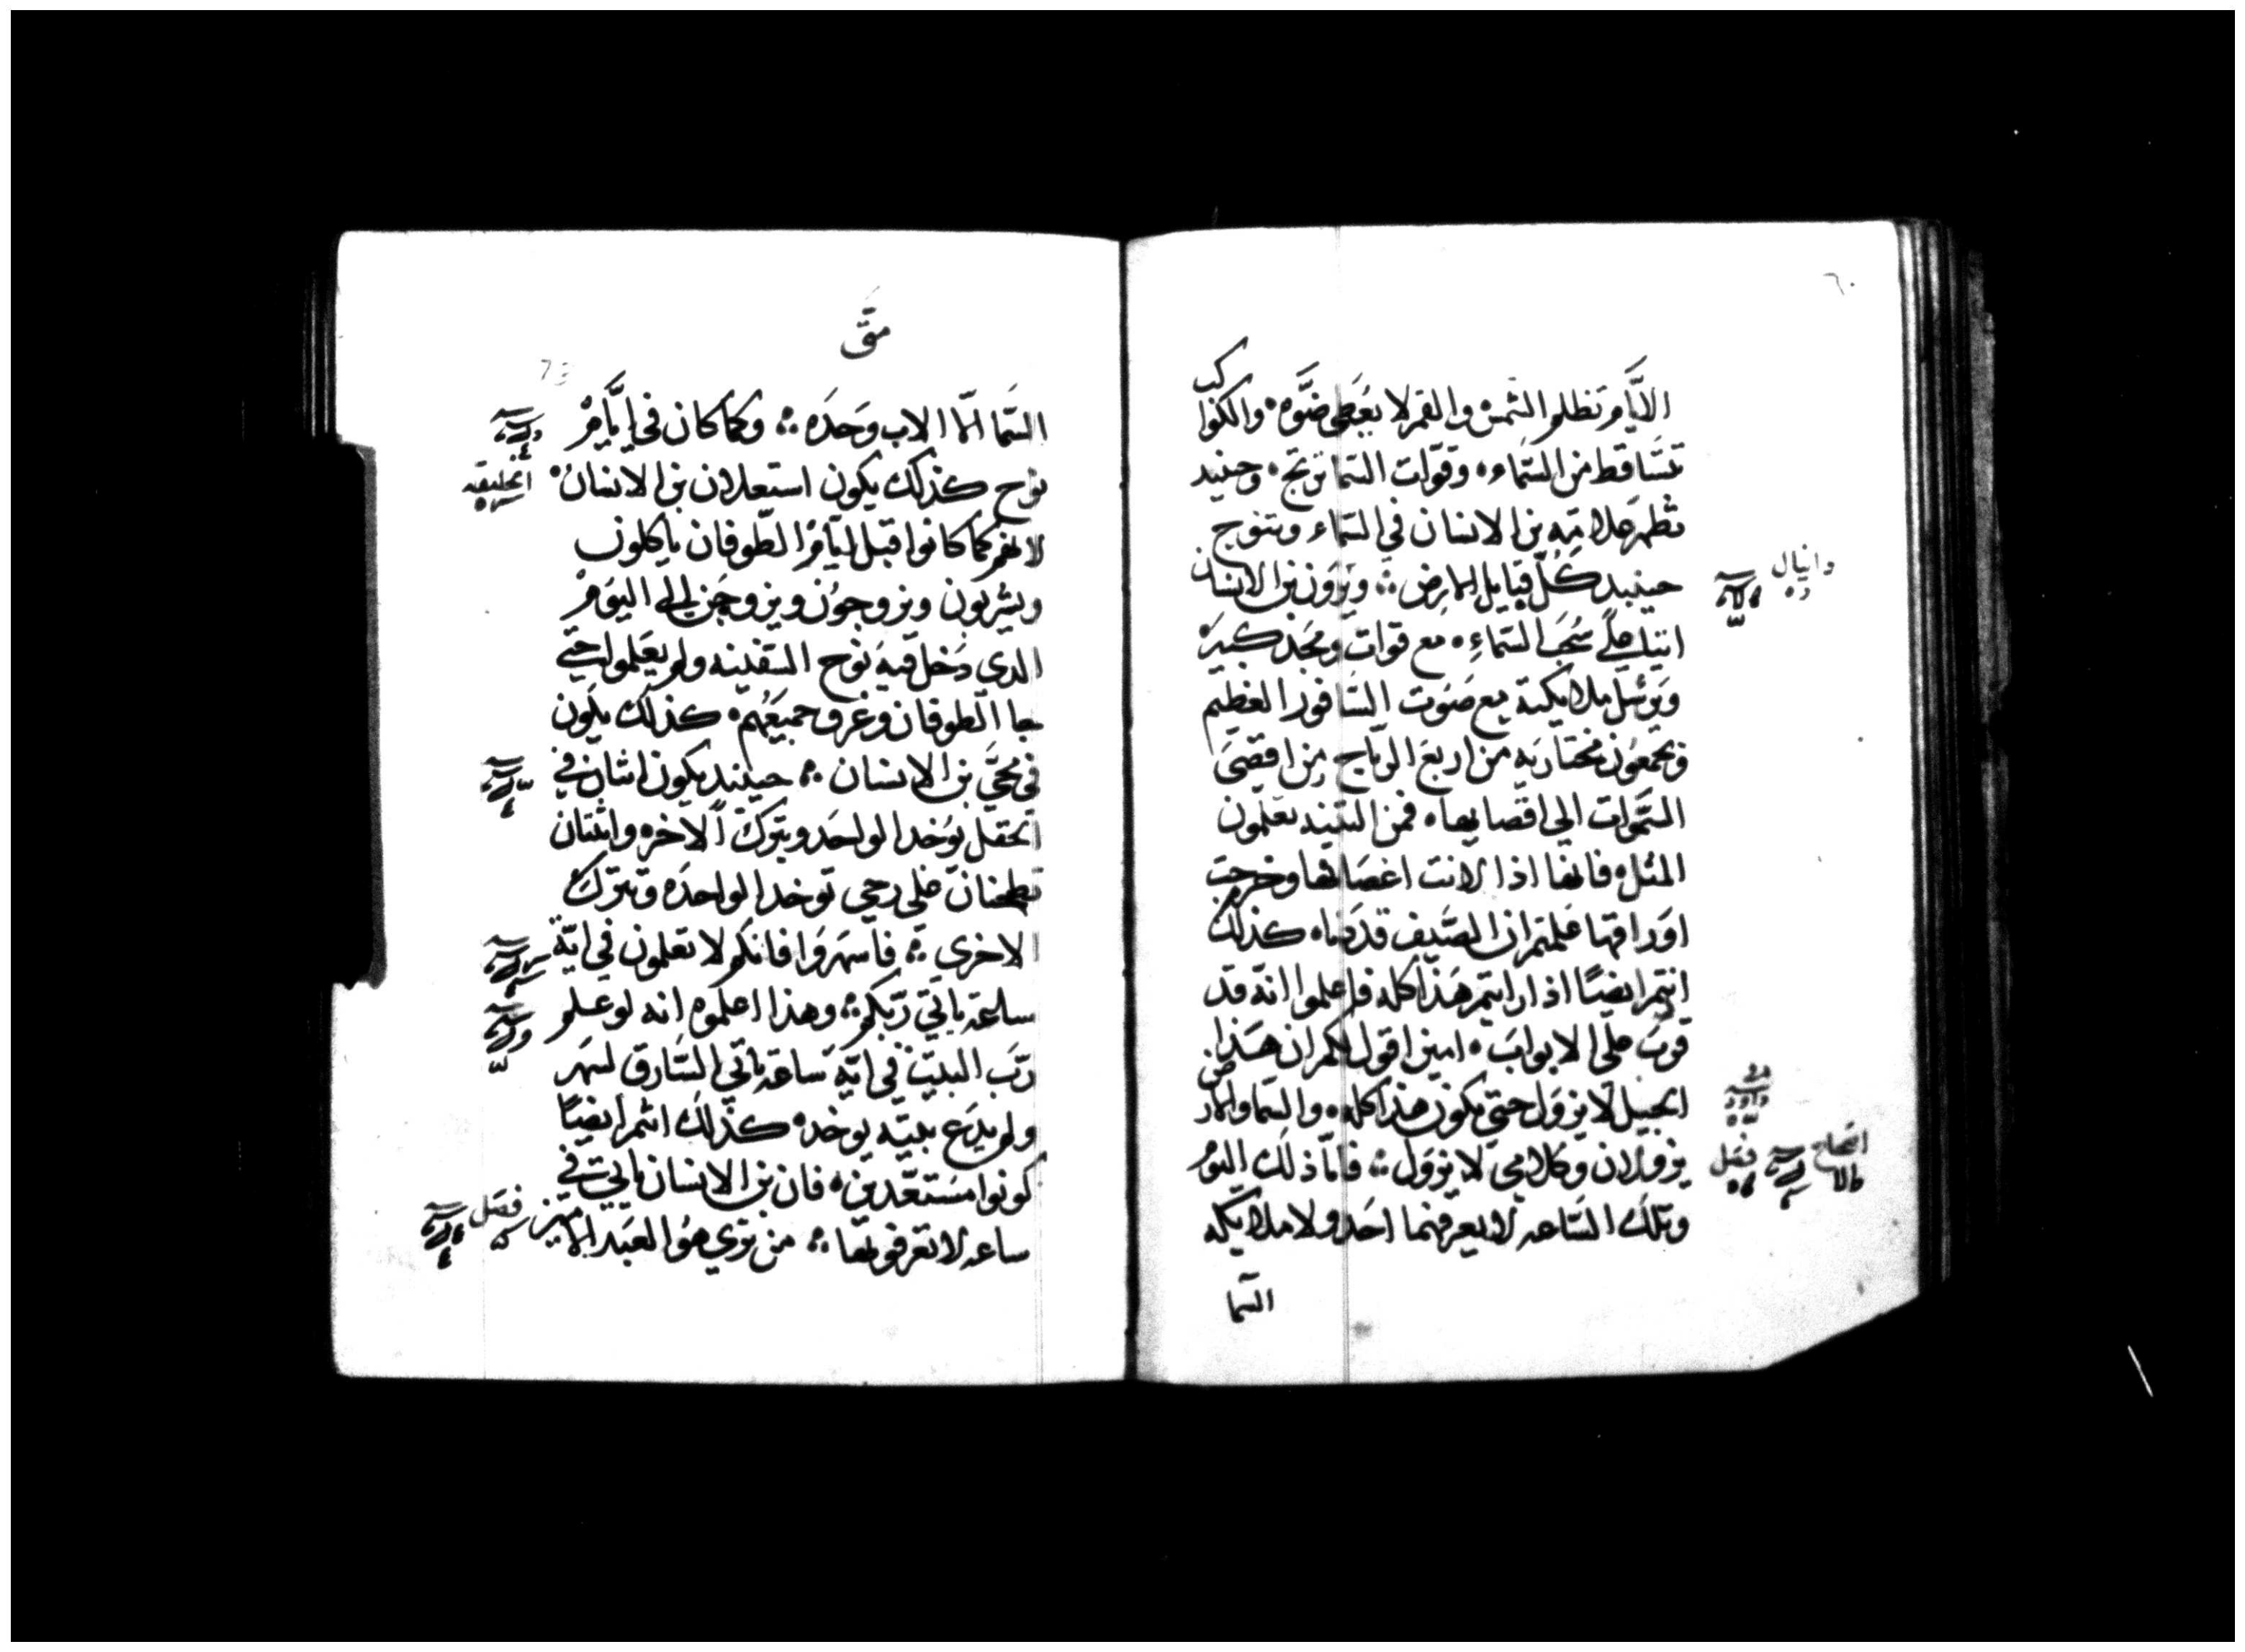 ٦٠
الايَّام تظلم الشمس والقمر لا يعطى ضوّه ٠ والكوا
كب
تتساقط من السَّماء ٠ وقوّات السَّما ترتج ٠ وحينيد
تظهر علامة بن الانسان في السَّماء وتنوح
حينيد كُلّ قبايل الارض ؞ ويَرَون بن الانسان
دانيال
اتياً على سُحَب السَّماءِ ٠ مع قوات ومَجد كبيرَه
ويَرسُل ملايكته مع صَوت السَّافور العَظيم
وَيجمعَون مختاريه من اربعَ الرياح من اقصَى
السَّموات الي اقصايها ٠ فمن التينه تعلمون
المثل ٠ فانها اذا لانت اغصَانها وخرجت
اوَراقها عَلمتم ان الصَّيف قد دَنا ٠ كذلك
انتم ايضاً اذا رايتم هَذا كله فاعلموا انه قد
قرب على الابواب ٠ امين اقول لكم ان هَذا
الجيل لا يزوَل حتي يكون هذا كله ٠ والسَّما والار
ض
داوود
يزولان وكلامي لا يزوَل ؞ فامّا ذلك اليَوم
فصَل
اصحاح
وتلك السَّاعه لا يعرفهما احَد ولا ملايكه
السَّما
متَّى
73
السَّما الّا الاب وَحَدَه ؞ وكما كان في ايَّام
نوح كذلك يكون استعلان بن الانسان ٠
الخليقه
لانهم كما كانوا قبل ايَّام الطّوفان ياكلون
ويشربون ويزوجون ويزوجَن الى اليَوَم
الدي دَخل فيه نوح السَّفينه ولم يعَلموا حتي
جا الطّوفان وغرق جميعَهم ٠ كذلك يكون
في مجَّي بن الانسان ؞ حينيد يكون اثنان في
الحقل يوخد الواحَد ويترك الاخر ٠ واثنتان
تطحنان علي رحي توخد الواحدَه وتترك
الاخري ؞ فاَسهَروَا فانكم لا تعلمون في ايّة
ساعة ياتي ربّكم ؞ وهذا اعلموه انه لو علم
رَبّ البيت في ايّة سَاعة ياتي السَّارق لسَهر
ولم يدَع بيته يوخد ٠ كذلك انتم ايضاً
كونوا مسَتعّدين ٠ فان بن الانسان ياتي في
ساعه لا تعَرفونها ؞ من تري هوَ العَبد الامين
فصَل